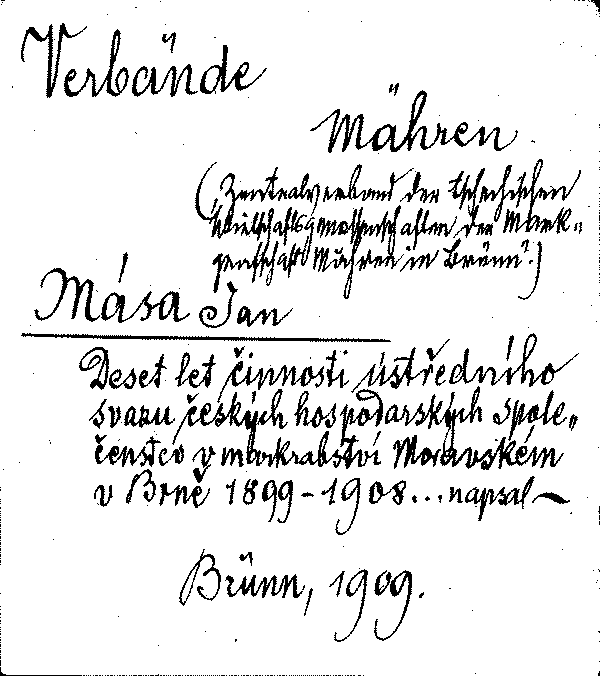 Verbände
Mähren
("Zentralverband der tschechischen
Wirtschaftsgenossenschaften der Mark-
grafschaft Mähren in Brünn".)
Mása Jan
Deset let činnosti ústředního
svazu českých hospodarských spole-
čenstev v markrabství Moravském
v Brně 1899-1908... napsal —
Brünn, 1909.